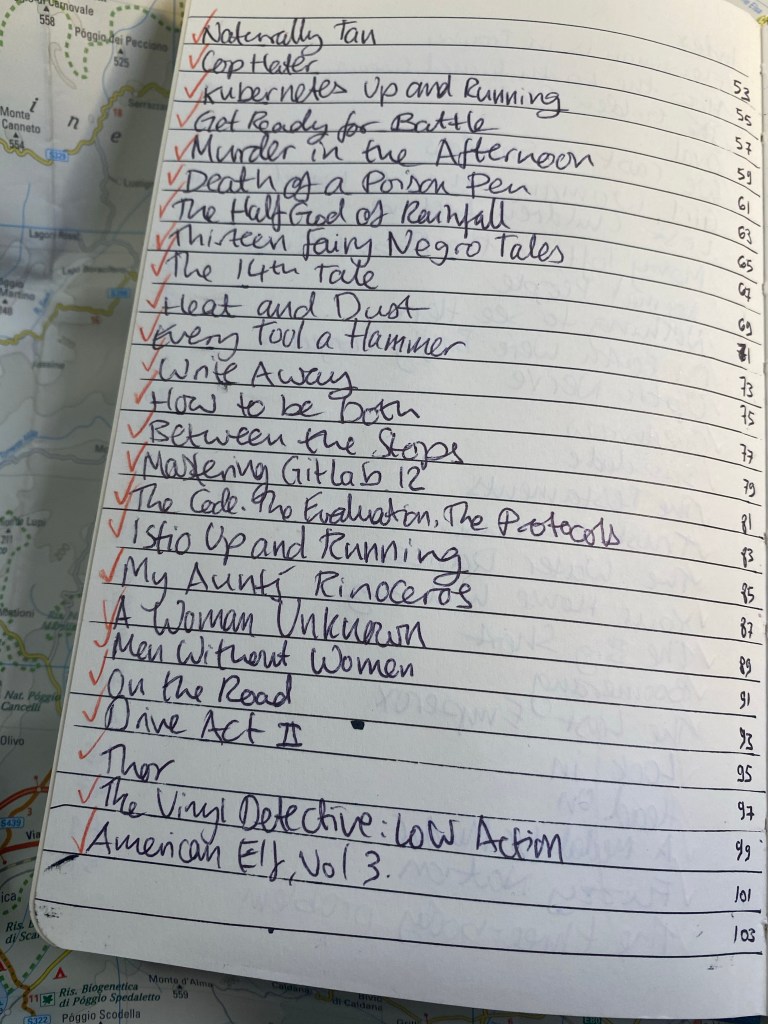 Naturally Tan 53
Cop Hater 55
Kubernetes Up and Running 57
Get Ready for Battle 59
Murder in the Afternoon 61
Death of a Poison Pen 63
The Half God of Rainfall 65
Thirteen Fairy Negro Tales 67
The 14th Tale 69
Heat and Dust 71
Every Tool a Hammer 73
Write Away 75
How to be both 77
Between the Stops 79
Mastering GitLab 12 81
The Code. The Evaluation, The Protocols 83
Istio Up and Running 85
My Aunt's Rinoceros 87
A Woman Unknown 89
Men Without Women 91
On the Road 93
Drive Act II 95
Thor 97
The Vinyl Detective: Low Action 99
American Elf, Vol 3. 101
103
558
Pòggio del Pecciano
525
Monte Canneto
554
Nat. Póggio Cancelli
Olivo
S439
Ris. Biogenetica
di Póggio Spedaletto
S322
Póggio Scodella
Monte d'Alma
559